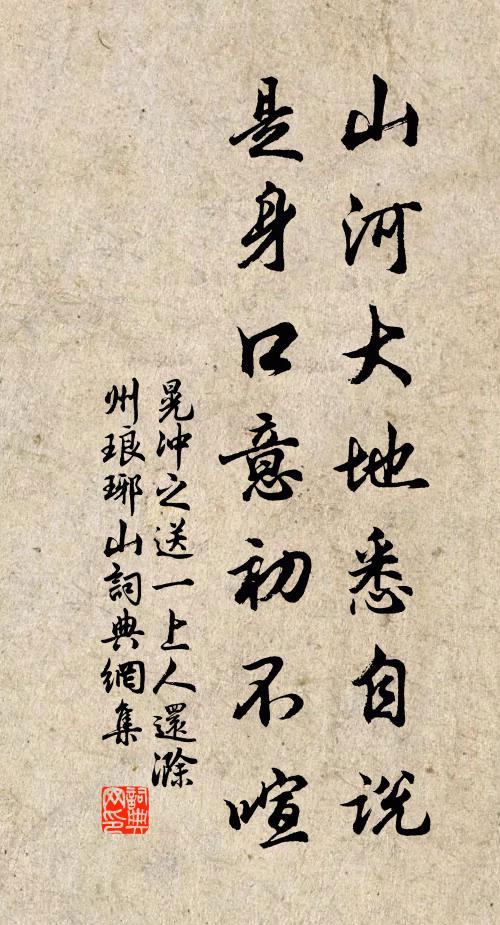 山河大地悉自说
是身口意初不喧
晃冲之送一上人還滁
州琅琊山詞典網集
詞典
网印